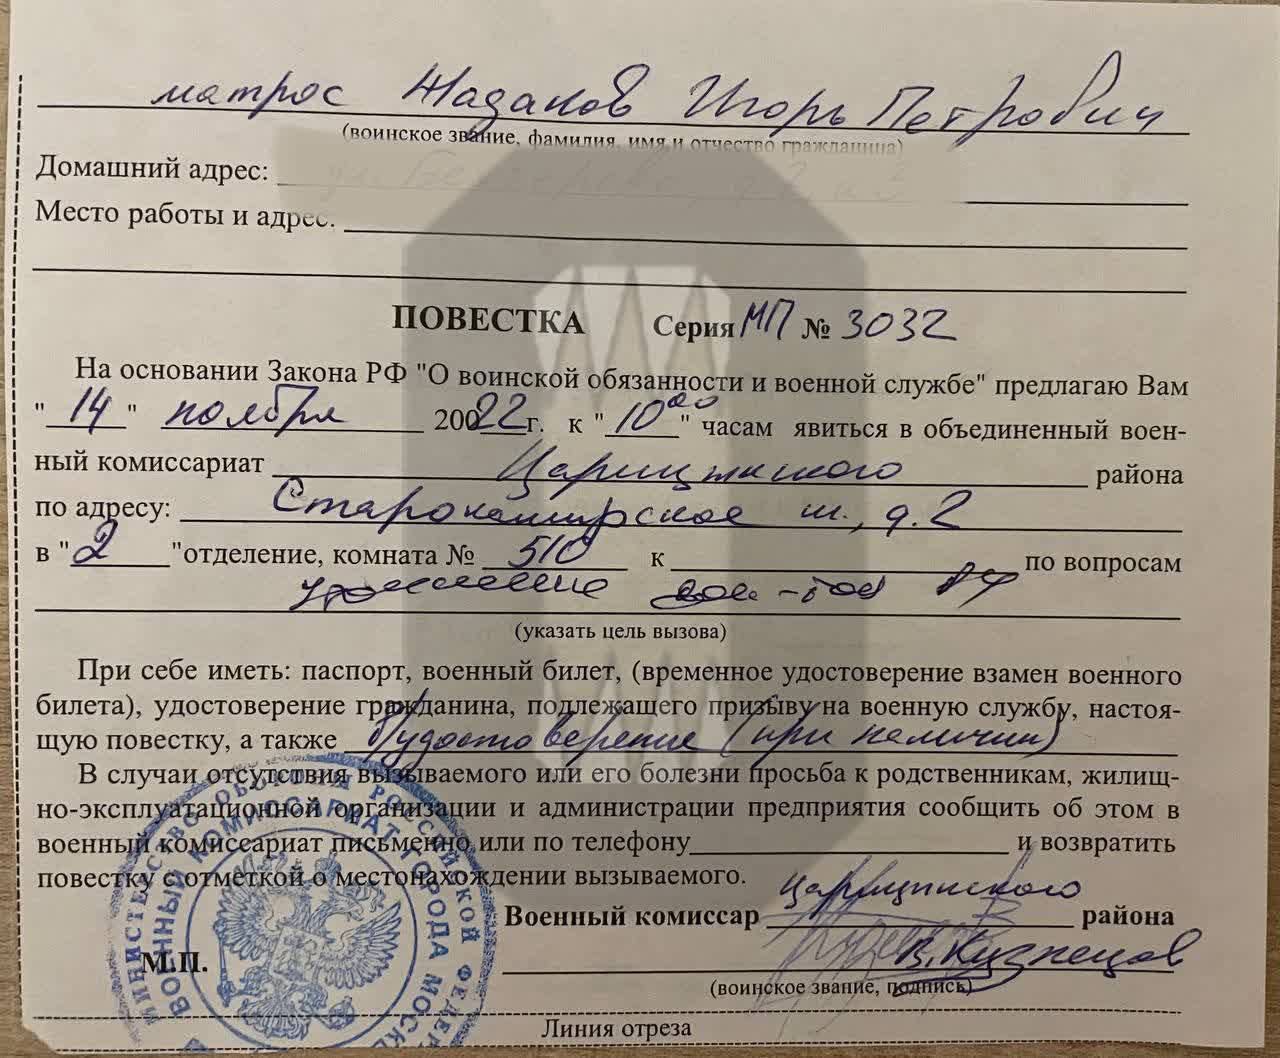 матрос Жаданов Игорь Петрович
(воинское звание, фамилия, имя и отчество гражданина)
Домашний адрес:
Место работы и адрес:
ПОВЕСТКА Серия МП № 3032
На основании Закона РФ "О воинской обязанности и военной службе" предлагаю Вам
"14" ноября 20022г. к "10⁰⁰" часам явиться в объединенный воен-
ный комиссариат Царицынского района
по адресу: Старокаширское ш., д.2
в "2"отделение, комната № 510 к по вопросам
уточнение
(указать цель вызова)
При себе иметь: паспорт, военный билет, (временное удостоверение взамен военного
билета), удостоверение гражданина, подлежащего призыву на военную службу, настоя-
щую повестку, а также удостоверение (при наличии)
В случаи отсутствия вызываемого или его болезни просьба к родственникам, жилищ-
но-эксплуатационной организации и администрации предприятия сообщить об этом в
военный комиссариат письменно или по телефону и возвратить
повестку с отметкой о местонахождении вызываемого.
Военный комиссар Царицынского района
М.П. В. Кузнецов
(воинское звание, подпись)
МИНИСТЕРСТВО ОБОРОНЫ РОССИЙСКОЙ ФЕДЕР
ВОЕННЫЙ КОМИССАРИАТ ГОРОДА МОСКВ
Линия отреза